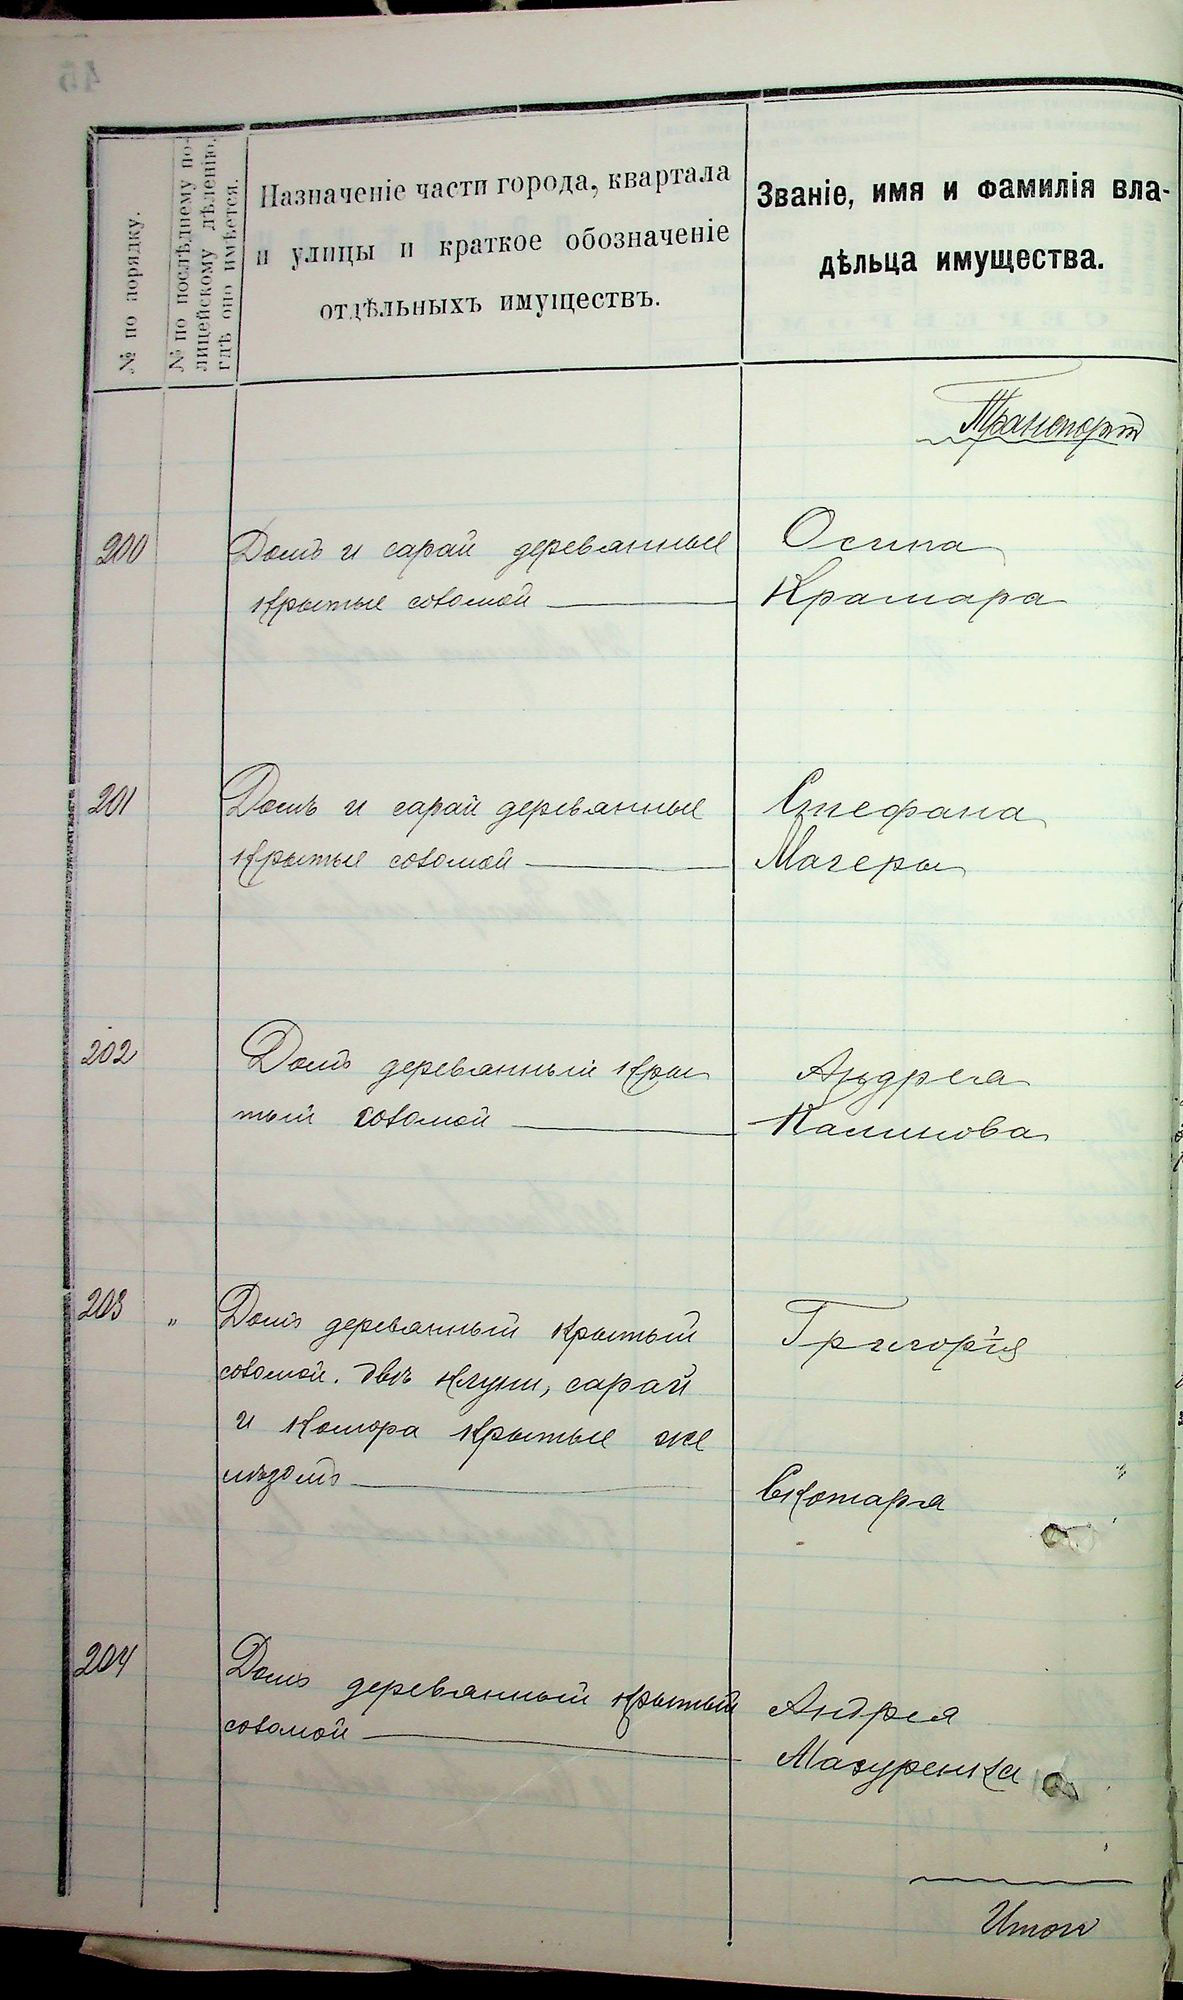 № по порядку.
№ по послѣднему по-
лицейскому дѣленію,
гдѣ оно имѣется.
Назначеніе части города, квартала
и улицы и краткое обозначеніе
отдѣльныхъ имуществъ.
Званіе, имя и фамилія вла-
дѣльца имущества.
Транспортъ
200 Домъ и сарай деревянные Осипа
крытые соломой Крамара
201 Домъ и сарай деревянные Стефана
крытые соломой Мачеры
202 Домъ деревянный кры Андрея
тый соломой Калинова
203 " Домъ деревянный крытый Григорія
соломой. Двѣ клуни, сарай
и комора крытые же
лѣзомъ Скотаря
204 Домъ деревянный крытый Андрея
соломой Мазуренка
Итого